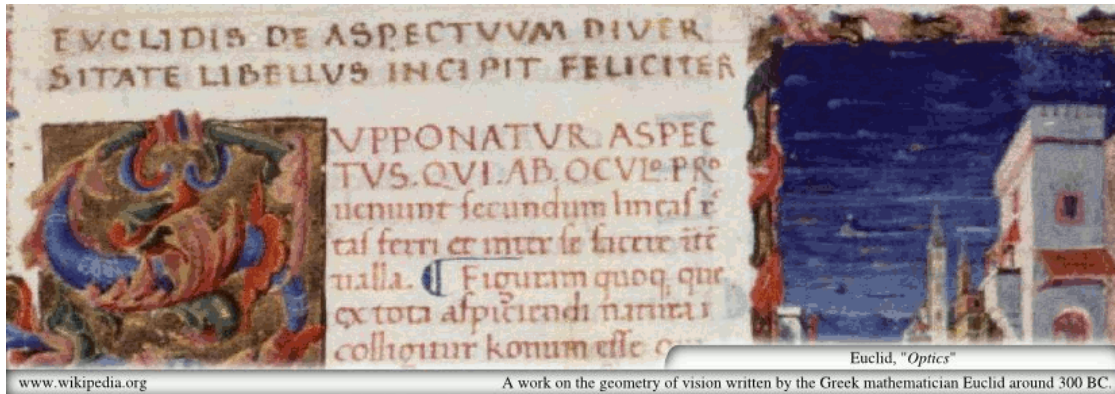 EVCLIDIS DE ASPECTVVM DIVER
SITATE LIBELLVS INCIPIT FELICITER
VPPONATVR ASPEC
TVS. QVI. AB. OCVLo. PRo
ueniunt secundum lineas r
tas ferri et inter se facere
ualla. ¶ Figuram quoq; que
ex toto aspiciendi natura
colligitur konum esse
Euclid, "Optics"
www.wikipedia.org
A work on the geometry of vision written by the Greek mathematician Euclid around 300 BC.